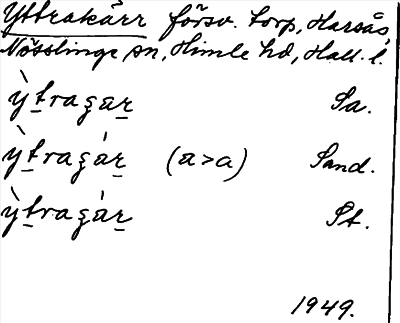 Yttrakärr försv. torp, Harsås,
Nösslinge sn, Himle hd, Hall. l.
ỳt̠ragar̠ Sa.
ỳt̠ragár̠ (a>a) Sand.
ỳt̠ragár̠ St.
1949.